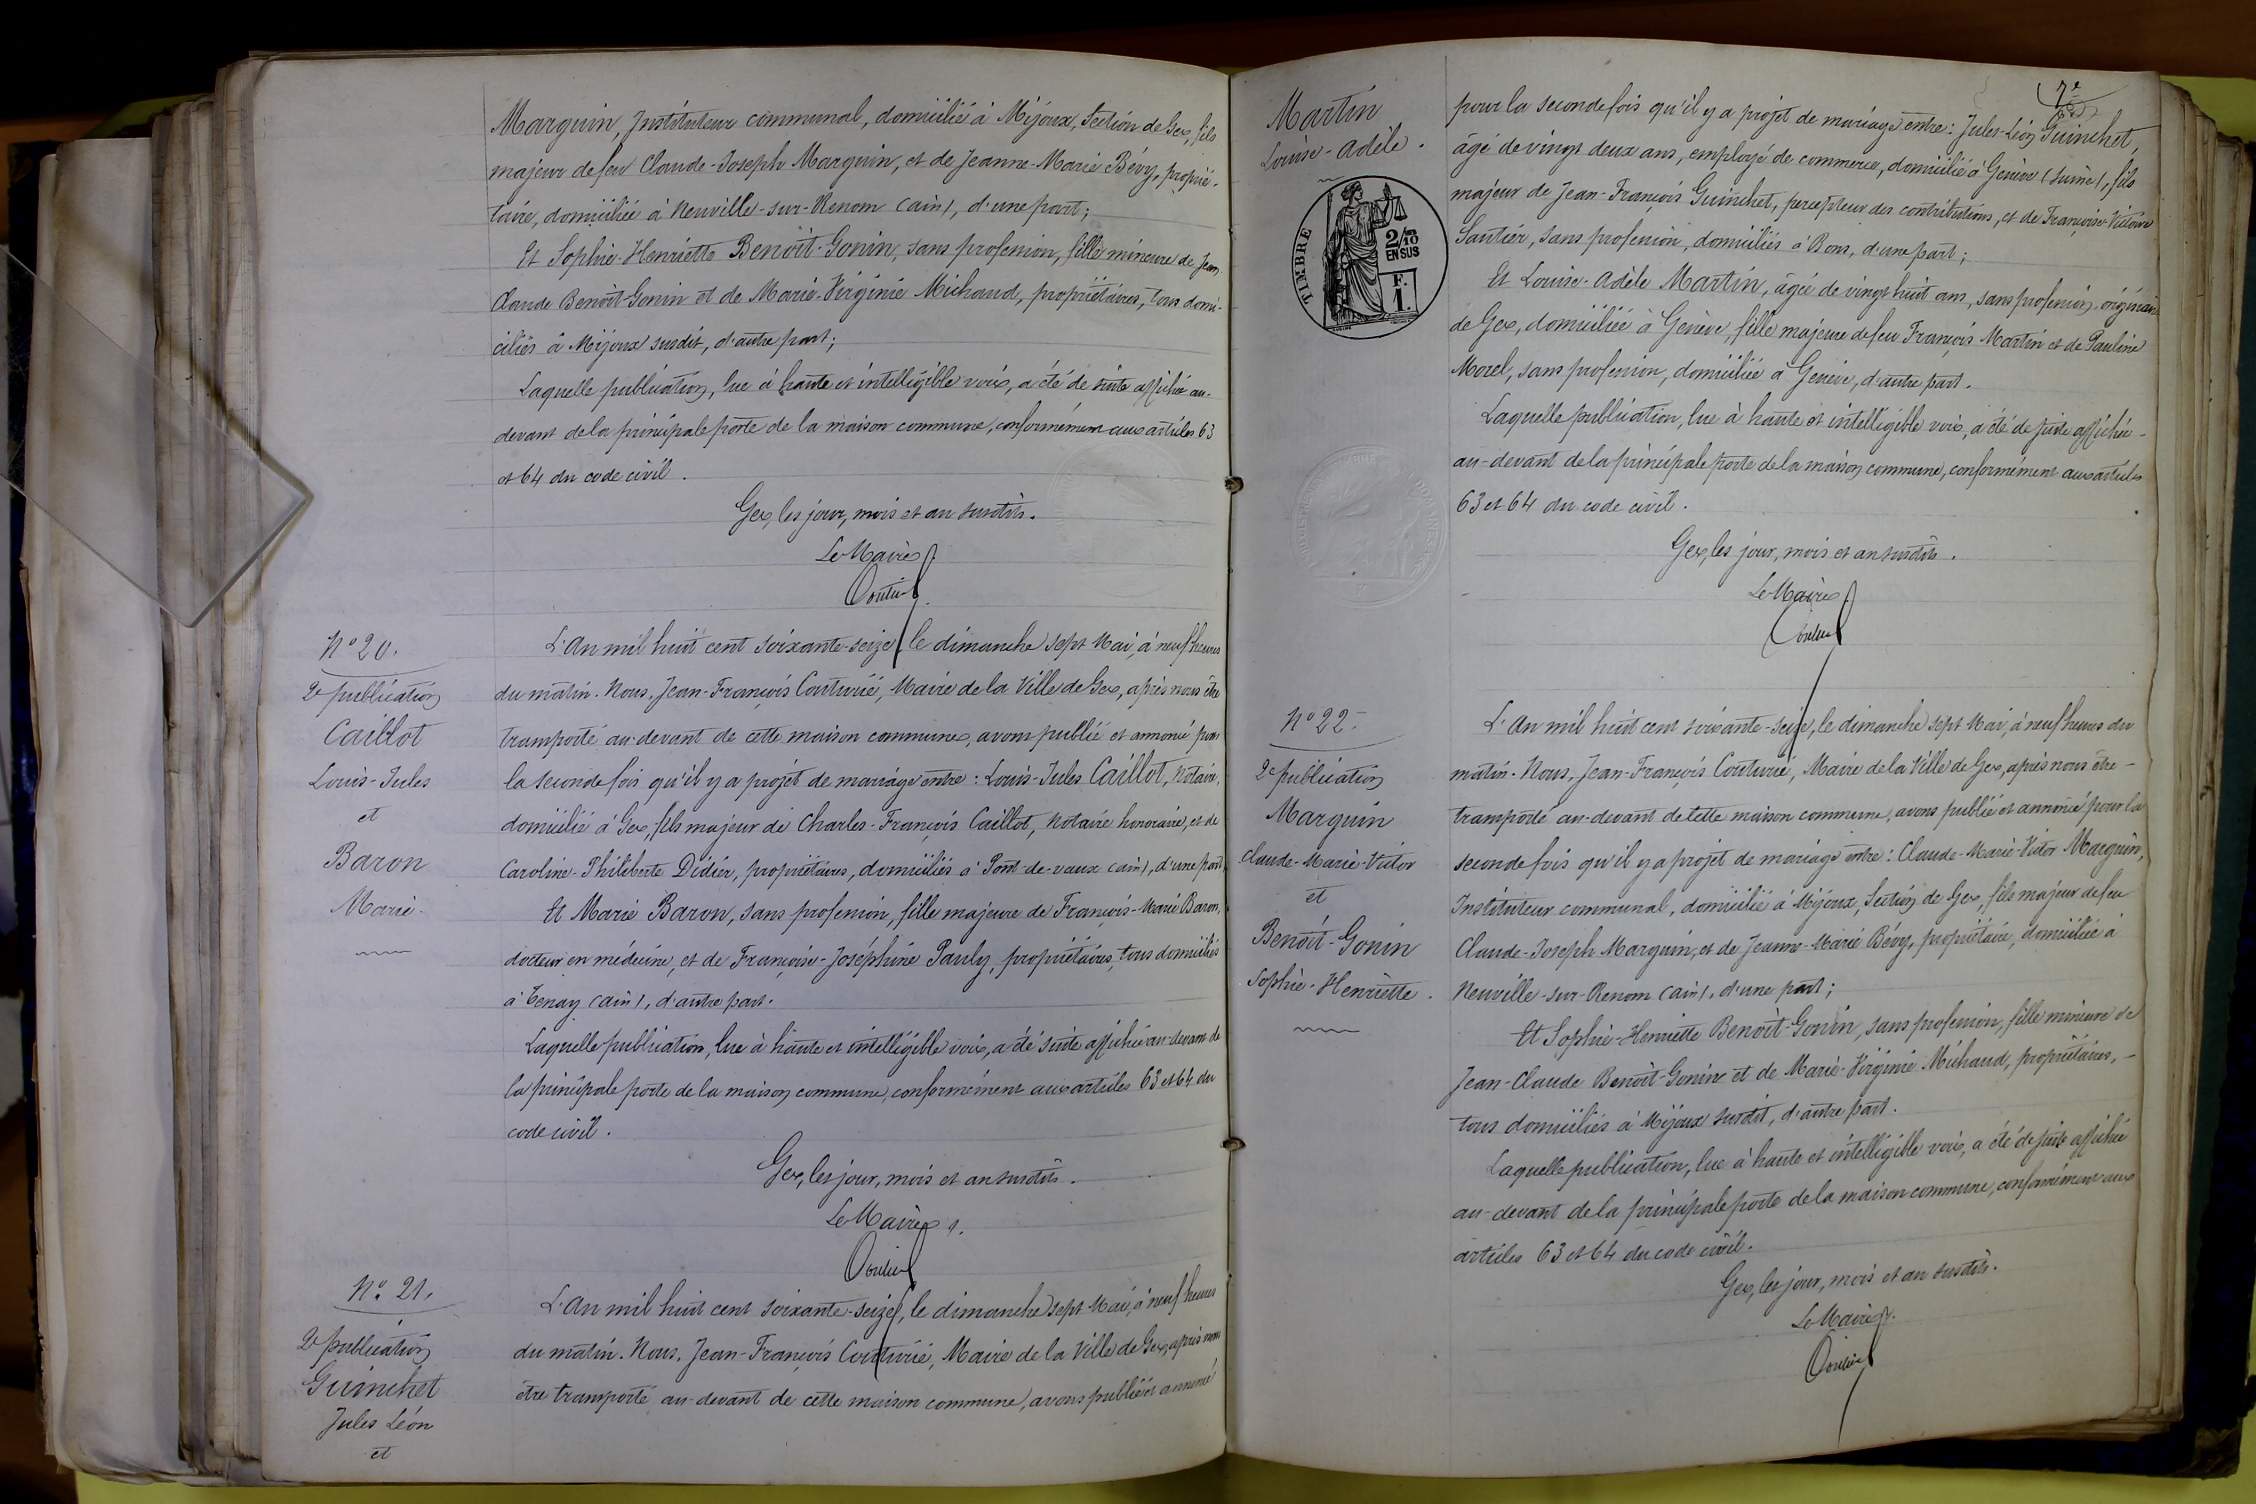 Marquin, Instituteur communal, domicilié à Mijoux, Section de Gex, fils
majeur de feu Claude-Joseph Marquin, et de Jeanne-Marie Bévy, proprié-
taire, domiciliée à Neuville-sur-Renom (ain), d'une part;
Et Sophie-Henriette Benoît-Gonin, sans profession, fille mineure de Jean-
Claude Benoît-Gonin et de Marie-Virginie Michaud, propriétaires, tous domi-
ciliés à Mijoux susdit, d'autre part;
Laquelle publication, lue à haute et intelligible voix, a été de suite affichée au-
devant de la principale porte de la maison commune, conformément aux articles 63
et 64 du code civil.
Gex, les jour, mois et an susdits.
Le Maire
N° 20.
2e publication
Caillot
Louis-Jules
et
Baron
Marie.
L'An mil huit cent soixante-seize, le dimanche sept Mai, à neuf heures
du matin. Nous, Jean-François Couturié, Maire de la Ville de Gex, après nous être
transporté au-devant de cette maison commune, avons publié et annoncé pour
la seconde fois qu'il y a projet de mariage entre: Louis-Jules Caillot, Notaire,
domicilié à Gex, fils majeur de Charles-François Caillot, Notaire honoraire, et de
Caroline-Philiberte Didier, propriétaires, domiciliés à Pont-de-vaux (ain), d'une part,
Et Marie Baron, sans profession, fille majeure de François-Marie Baron,
docteur en médecine, et de Françoise-Joséphine Pauly, propriétaires, tous domiciliés
à Tenay (ain), d'autre part.
Laquelle publication, lue à haute et intelligible voix, a été suite affichée au-devant de
la principale porte de la maison commune, conformément aux articles 63 et 64 du
code civil.
Gex, les jour, mois et an susdits.
Le Maire
N° 21.
2e publication
Guinchet
Jules Léon
et
L'An mil huit cent soixante-seize, le dimanche sept Mai, à neuf heures
du matin. Nous, Jean-François Couturié, Maire de la Ville de Gex, après nous
être transporté au-devant de cette maison commune, avons publié et annoncé
Martin
Louise-Adèle.
TIMBRE
2/10
EN SUS
F.
1.
pour la seconde fois qu'il y a projet de mariage entre: Jules-Léon Guinchet,
âgé de vingt deux ans, employé de commerce, domicilié à Genève (Suisse), fils
majeur de Jean-François Guinchet, percepteur des contributions, et de Françoise-Victoire
Sautier, sans profession, domiciliés à Bons, d'une part;
Et Louise-Adèle Martin, âgée de vingt huit ans, sans profession, originaire
de Gex, domiciliée à Genève, fille majeure de feu François Martin et de Pauline
Morel, sans profession, domiciliée à Genève, d'autre part.
Laquelle publication, lue à haute et intelligible voix, a été de suite affichée -
au-devant de la principale porte de la maison commune, conformément aux articles
63 et 64 du code civil.
Gex, les jour, mois et an susdits.
Le Maire
N° 22.
2e publication
Marquin
Claude-Marie-Victor
et
Benoît-Gonin
Sophie-Henriette.
L'An mil huit cent soixante-seize, le dimanche sept Mai, à neuf heures du
matin. Nous, Jean-François Couturié, Maire de la Ville de Gex, après nous être -
transporté au-devant de cette maison commune, avons publié et annoncé pour la
seconde fois qu'il y a projet de mariage entre: Claude-Marie-Victor Marquin,
Instituteur communal, domicilié à Mijoux, Section de Gex, fils majeur de feu
Claude-Joseph Marquin, et de Jeanne-Marie Bévy, propriétaire, domiciliée à
Neuville-sur-Renom (ain), d'une part;
Et Sophie-Henriette Benoît-Gonin, sans profession, fille mineure de
Jean-Claude Benoît-Gonin et de Marie-Virginie Michaud, propriétaires, -
tous domiciliés à Mijoux susdit, d'autre part.
Laquelle publication, lue à haute et intelligible voix, a été de suite affichée
au-devant de la principale porte de la maison commune, conformément aux
articles 63 et 64 du code civil.
Gex, les jour, mois et an susdits.
Le Maire